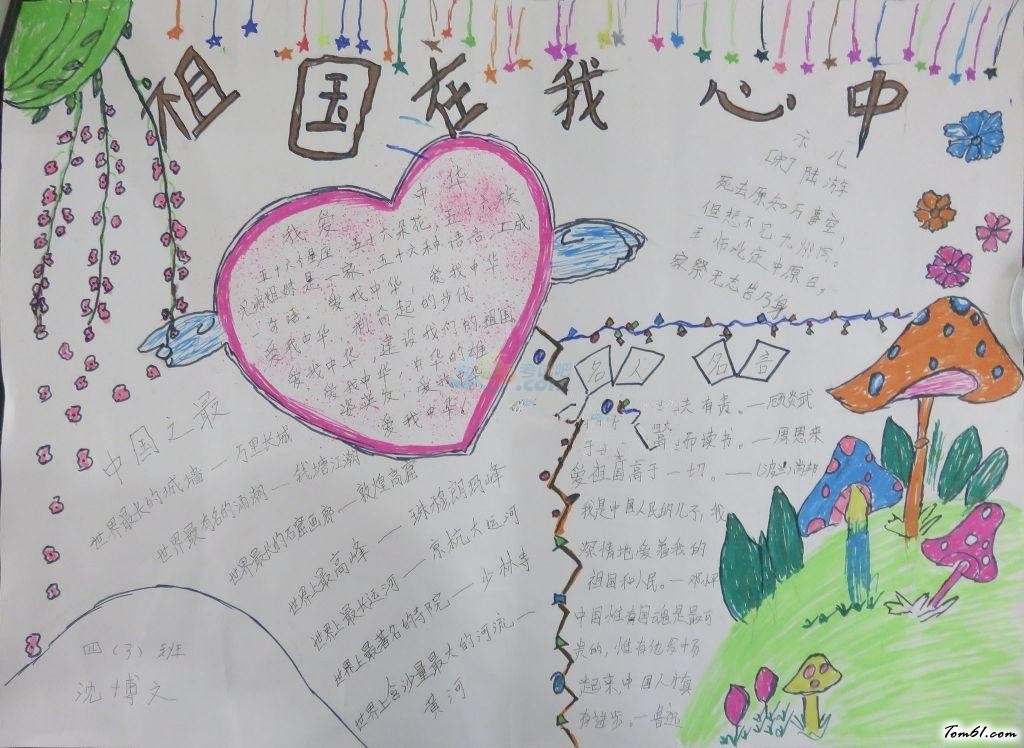 祖国在我心中
示儿
[宋]陆游
死去原知万事空,
但悲不见九州同。
王师北定中原日,
家祭无忘告乃翁
我爱中华
五十六个星座五十六朵花,五十六族
兄弟姐妹是一家,五十六种语言,汇成
句语。爱我中华,爱我中华
爱我中华,奋起的步伐
爱我中华,建设我们的祖国
爱我中华,中华的雄
姿焕发,爱我中华
爱我中华。
中国之最
世界最长的城墙—万里长城
世界最有名的涌潮—钱塘江潮
世界最大的石窟画廊—敦煌高窟
世界上最高峰—珠穆朗玛峰
世界上最长运河—京杭大运河
世界上最著名的寺院—少林寺
世界上含沙量最大的河流—
黄河
四(3)班
沈博文
名人名言
夫有责。—顾炎武
而读书。—周恩来
爱祖国高于一切。——
我是中国人民的儿子,我
深情地爱着我的
祖国和人民。—邓小平
中国惟有国魂是最可
贵的,惟有他发扬
起来,中国人才真
有进步。—鲁迅
Tom61.com